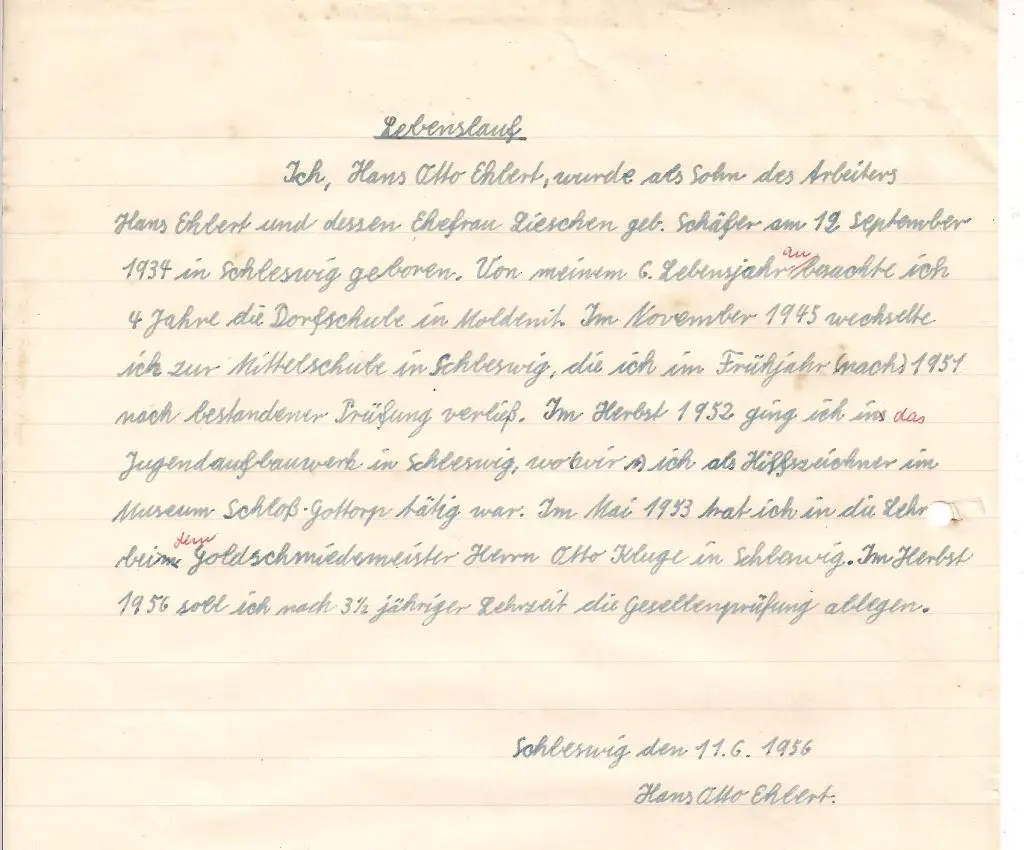 Lebenslauf
Ich, Hans Otto Ehlert, wurde als Sohn des Arbeiters
Hans Ehlert und dessen Ehefrau Lieschen geb. Schäfer am 12 September
1934 in Schleswig geboren. Von meinem 6. Lebensjahr an besuchte ich
4 Jahre die Dorfschule in Moldenit. Im November 1945 wechselte
ich zur Mittelschule in Schleswig, die ich im Frühjahr (nach) 1951
nach bestandener Prüfung verließ. Im Herbst 1952 ging ich ins das
Jugendaufbauwerk in Schleswig, wo (wir) ich als Hilfszeichner im
Museum Schloß-Gottorp tätig war. Im Mai 1953 trat ich in die Lehr
beim dem Goldschmiedemeister Herrn Otto Kluge in Schleswig. Im Herbst
1956 soll ich nach 3½ jähriger Lehrzeit die Gesellenprüfung ablegen.
Schleswig den 11.6. 1956
Hans Otto Ehlert.